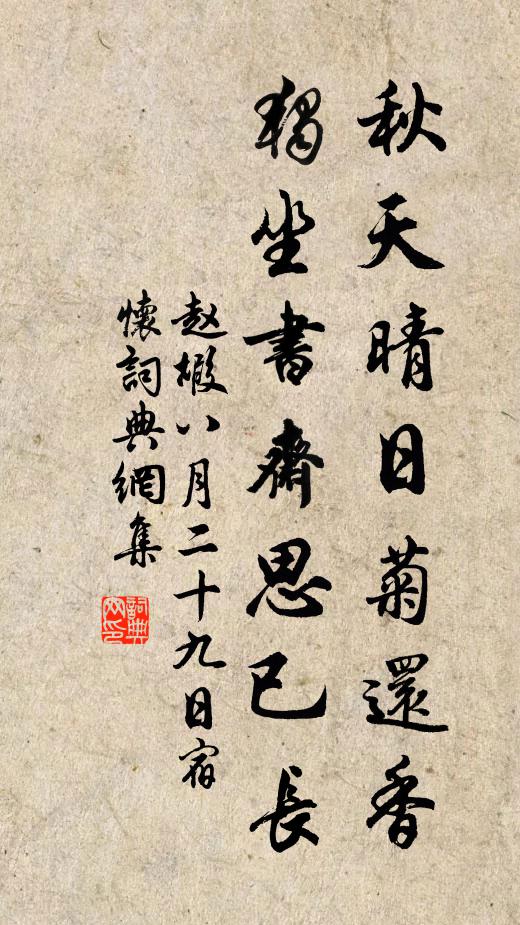 秋天晴日菊還香
獨坐書齋思已長
赵嘏八月二十九日宿
懷詞典網集
詞典网印